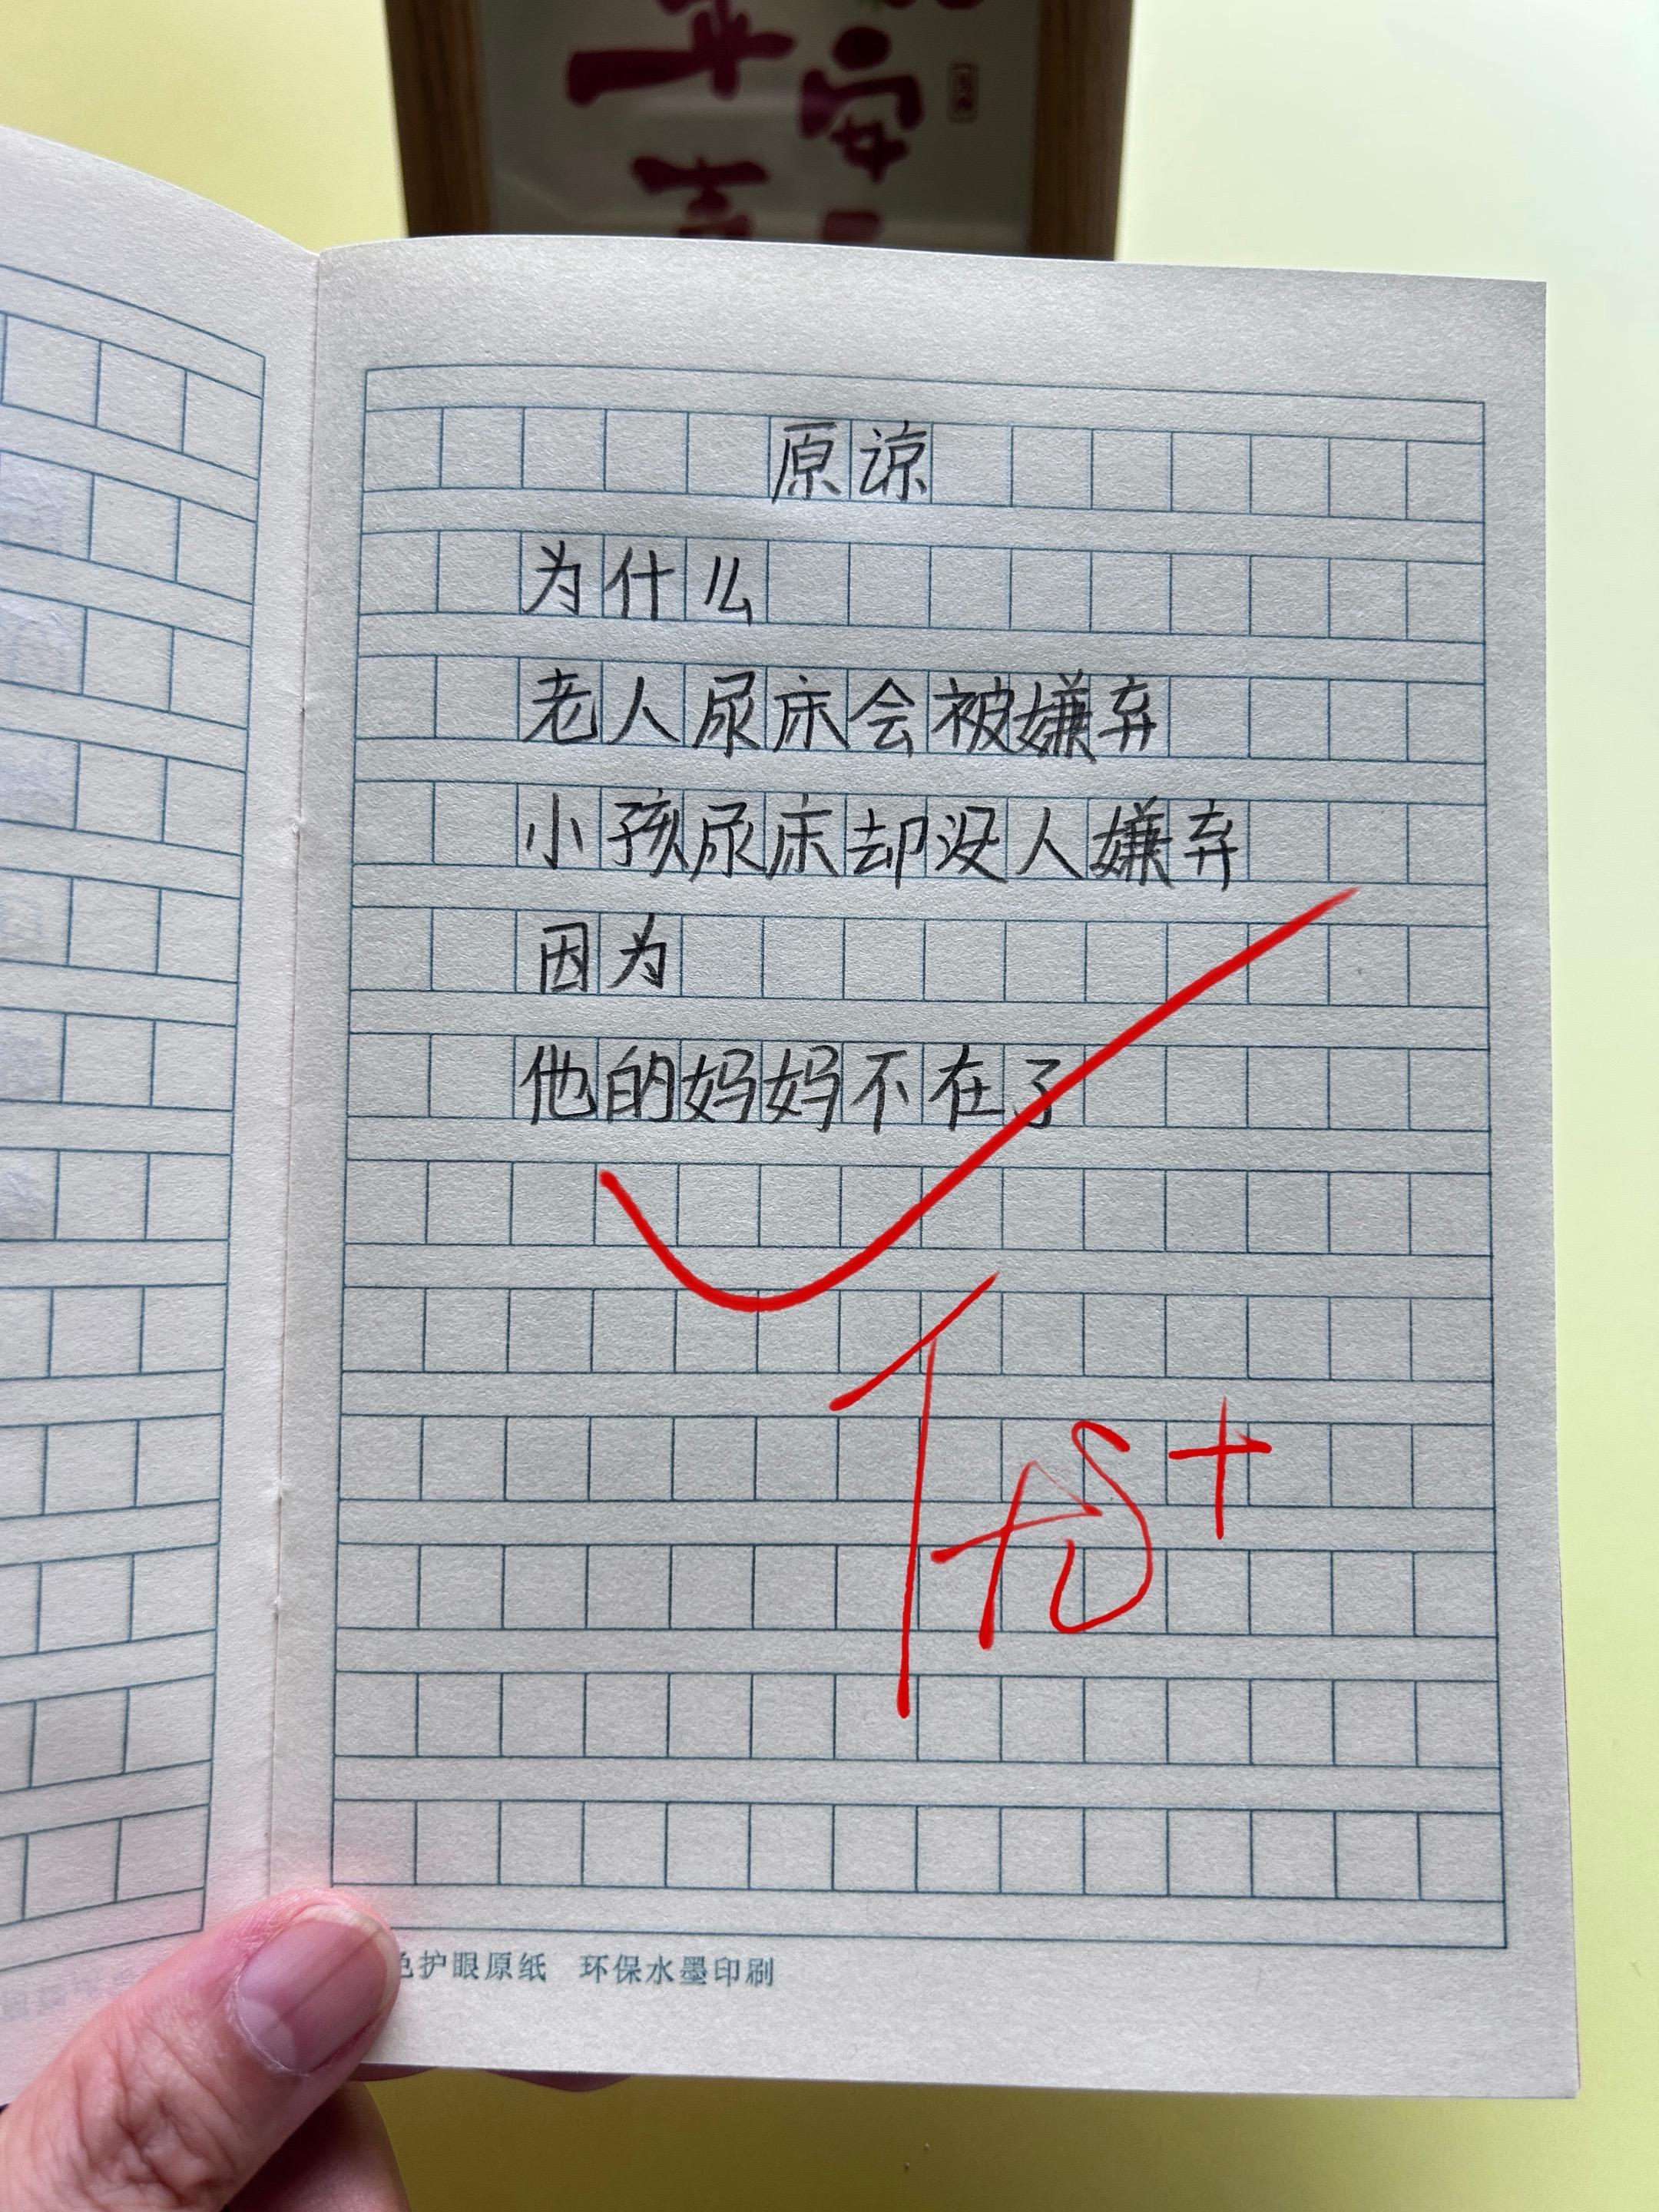 平安
喜
原谅
为什么
老人尿床会被嫌弃
小孩尿床却没人嫌弃
因为
他的妈妈不在了
优+
色护眼原纸 环保水墨印刷